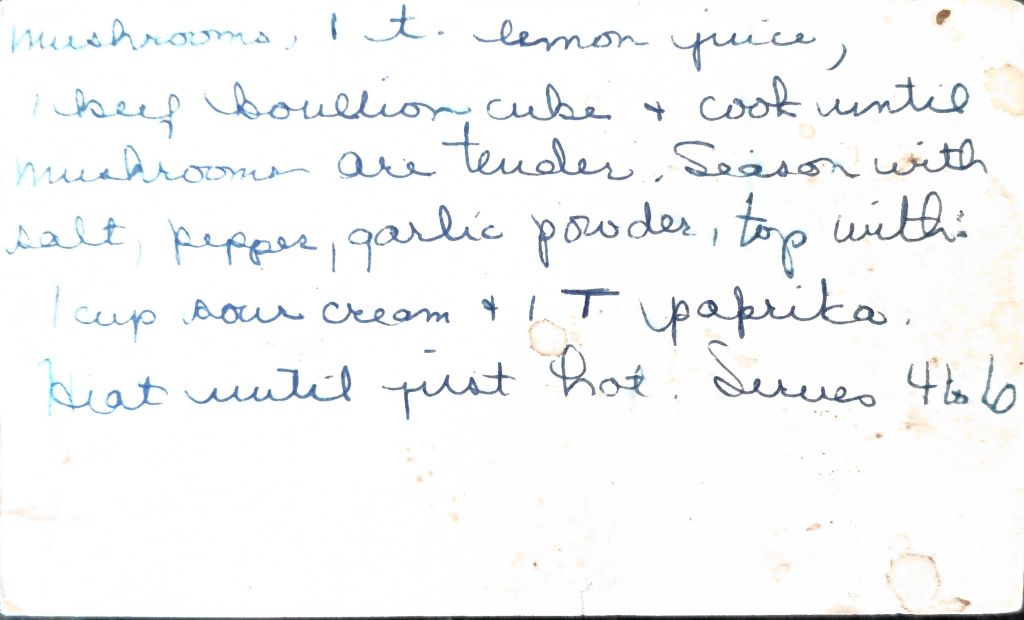 mushrooms, 1 t. lemon juice,
1 beef boullion cube + cook until
mushrooms are tender. Season with
salt, pepper, garlic powder, top with:
1 cup sour cream + 1 T paprika.
Heat until just hot. Serves 4 to 6